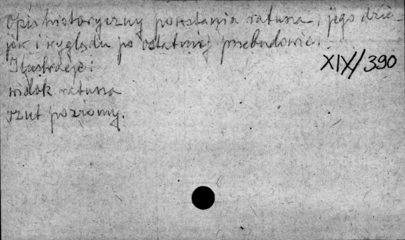 opis historyczny powstania ratusza, jego dzie-
jów i wyglądu po ostatniej przebudowie.
Ilustracje:
XIX/390
widok ratusza
rzut poziomy.